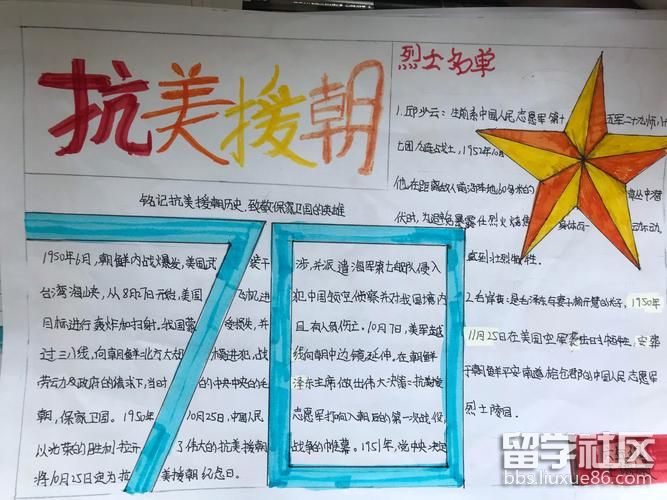 抗美援朝
铭记抗美援朝历史,致敬保家卫国的英雄
1950年6月,朝鲜内战爆发,美国武装干涉,并派遣海军第七舰队侵入
台湾海峡,从8月27日开始,美国飞机进犯中国领空侦察并对我国境内
目标进行轰炸和扫射,我国蒙受损失,并且有人员伤亡。10月7日,美军越
过三八线,向朝鲜北方大幅进犯,战线向朝中边境延伸,在朝鲜
劳动力及政府的请求下,当时的中共中央的毛泽东主席做出伟大决策:抗美援
朝,保家卫国。1950年10月25日,中国人民志愿军打响入朝后的第一次战役,
以光荣的胜利拉开了伟大的抗美援朝战争的帷幕。1951年,党中央决定
将10月25日定为抗美援朝纪念日。
烈士名单
1.邱少云:生前系中国人民志愿军第十五军二十九师八十
七团九连战士,1952年10月
他在距离敌人前沿阵地60多米的草丛中潜
伏时,为避免暴露任烈火烧焦身体而一动不动,
直到壮烈牺牲。
2.毛岸英:是毛泽东与妻子杨开慧的长子,1950年
11月25日在美国空军袭击时牺牲,安葬
于朝鲜平安南道桧仓郡的中国人民志愿军
烈士陵园。
70
留学社区
bbs.liuxue86.com